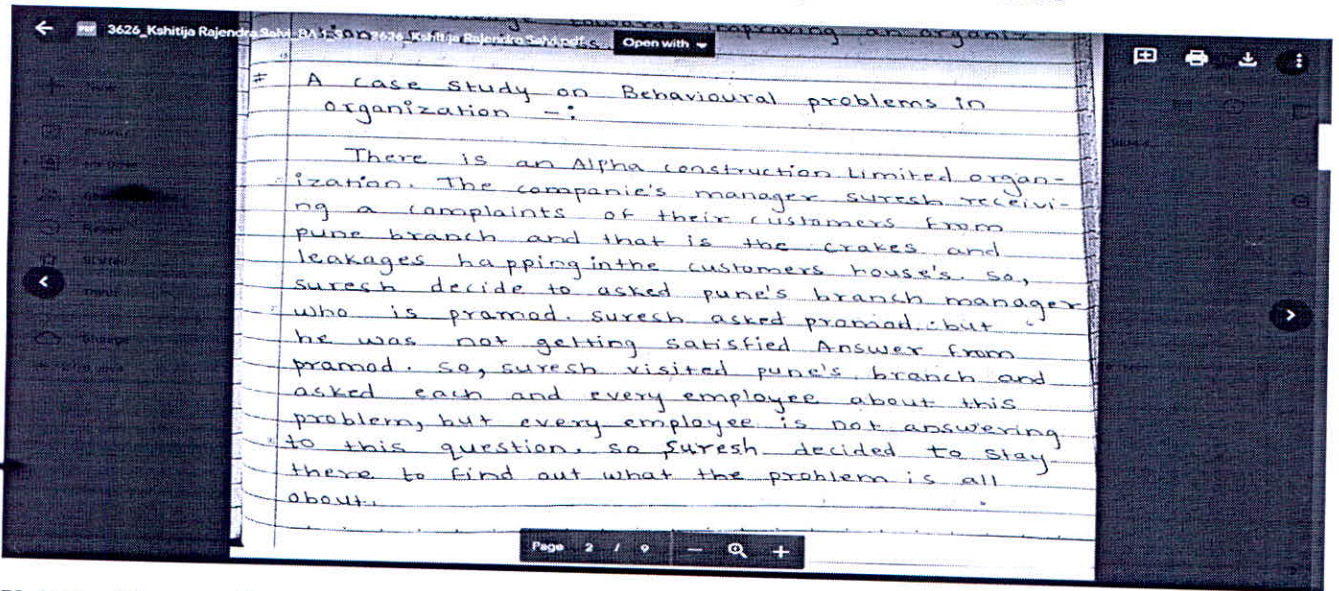 3626_Kshitija Rajendra Salvi
towards improving an organiz-
Open with
# A case study on Behavioural problems in
organization -:
There is an Alpha construction Limited organ-
ization. The companie's manager suresh receivi-
ng a complaints of their customers from
pune branch and that is the crakes and
leakages happing inthe customers house's. So,
suresh decide to asked pune's branch manager
who is pramod. suresh asked pramod. but
he was not getting satisfied Answer from
pramod. so, suresh visited pune's branch and
asked each and every employee about this
problem, but every employee is not answering
to this question. so Suresh decided to stay
there to find out what the problem is all
about.
Page 2 / 9